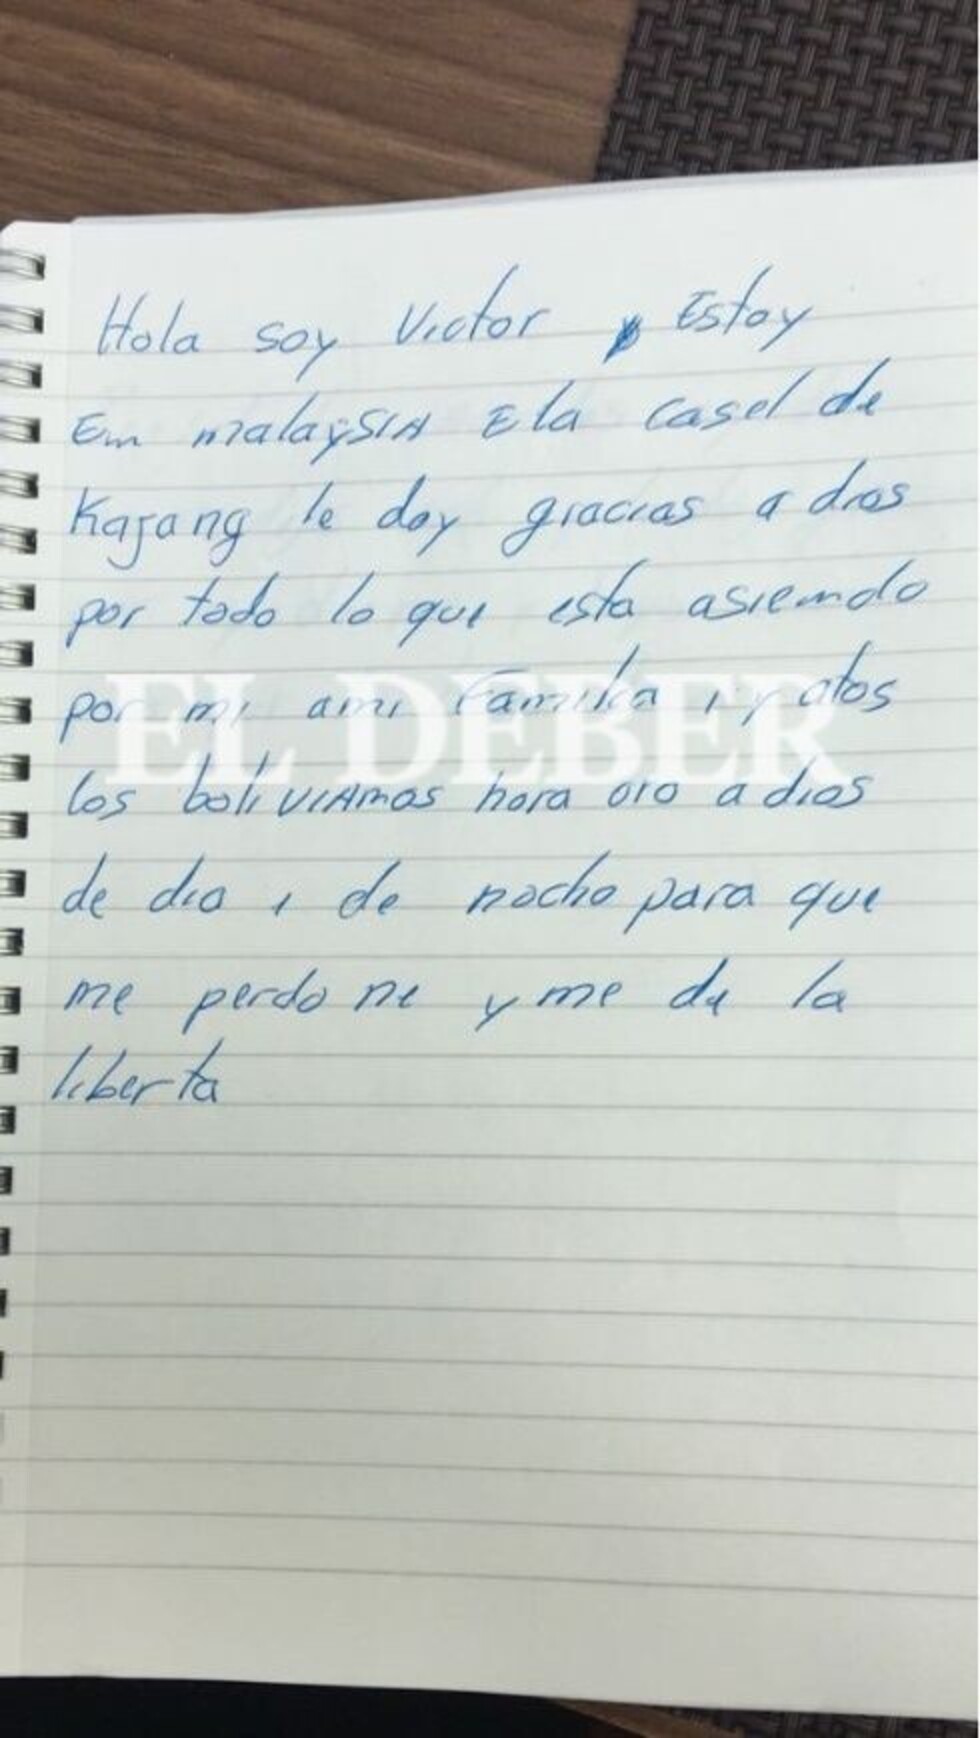 Hola soy Victor y Estoy
Em malaysia E la casel de
Kajang le doy gracias a dios
por todo lo que esta asiemdo
por mi ami Familia i y atos
los boliviamos hora oro a dios
de dia i de noche para que
me perdo ne y me de la
liberta
EL DEBER